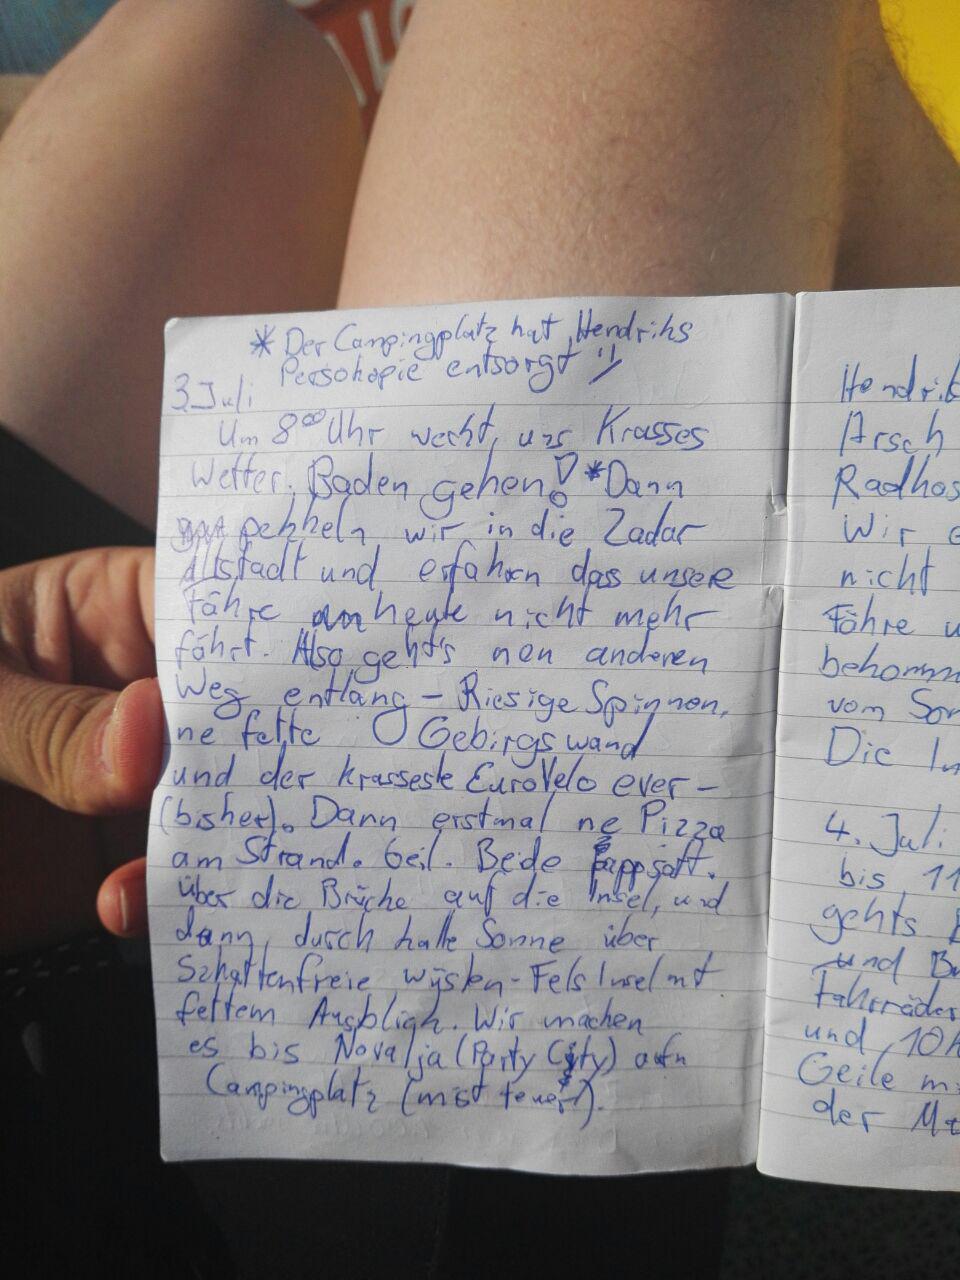 * Der Campingplatz hat Hendriks
Persokopie entsorgt !!
3. Juli
Um 8⁰⁰ Uhr weckt uns Krasses
Wetter. Baden gehen! *Dann
pekkeln wir in die Zadar
Altstadt und erfahren das unsere
Fähre heute nicht mehr
fährt. Also geht's nen anderen
Weg entlang – Riesige Spinnen,
ne fette Gebirgswand
und der krasseste EuroVelo ever –
(bisher). Dann erstmal ne Pizza
am Strand. Geil. Beide pappsatt.
über die Brücke auf die Insel, und
dann durch halle Sonne über
Schattenfreie wüsten-Fels Insel mit
fettem Ausbligk. Wir machen
es bis Novalja (Party City) aufn
Campingplatz (mist teuer!).
Arsch
Wir
nicht
Fähre
vom
Die
4. Juli
bis 11
gehts
und
und 10
Geile
der